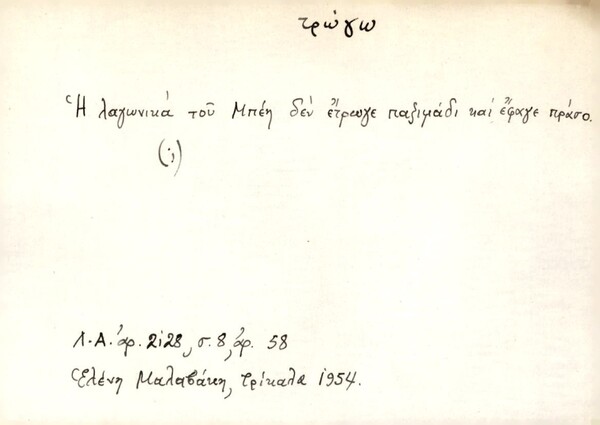 τρώγω
Ἡ λαγωνικά τοῦ Μπέη δέν ἔτρωγε παξιμάδι καί ἔφαγε πράσο.
(;)
Λ.Α. ἀρ. 2128, σ. 8, ἀρ. 58
Ἑλένη Μαλαβάκη, Τρίκαλα 1954.